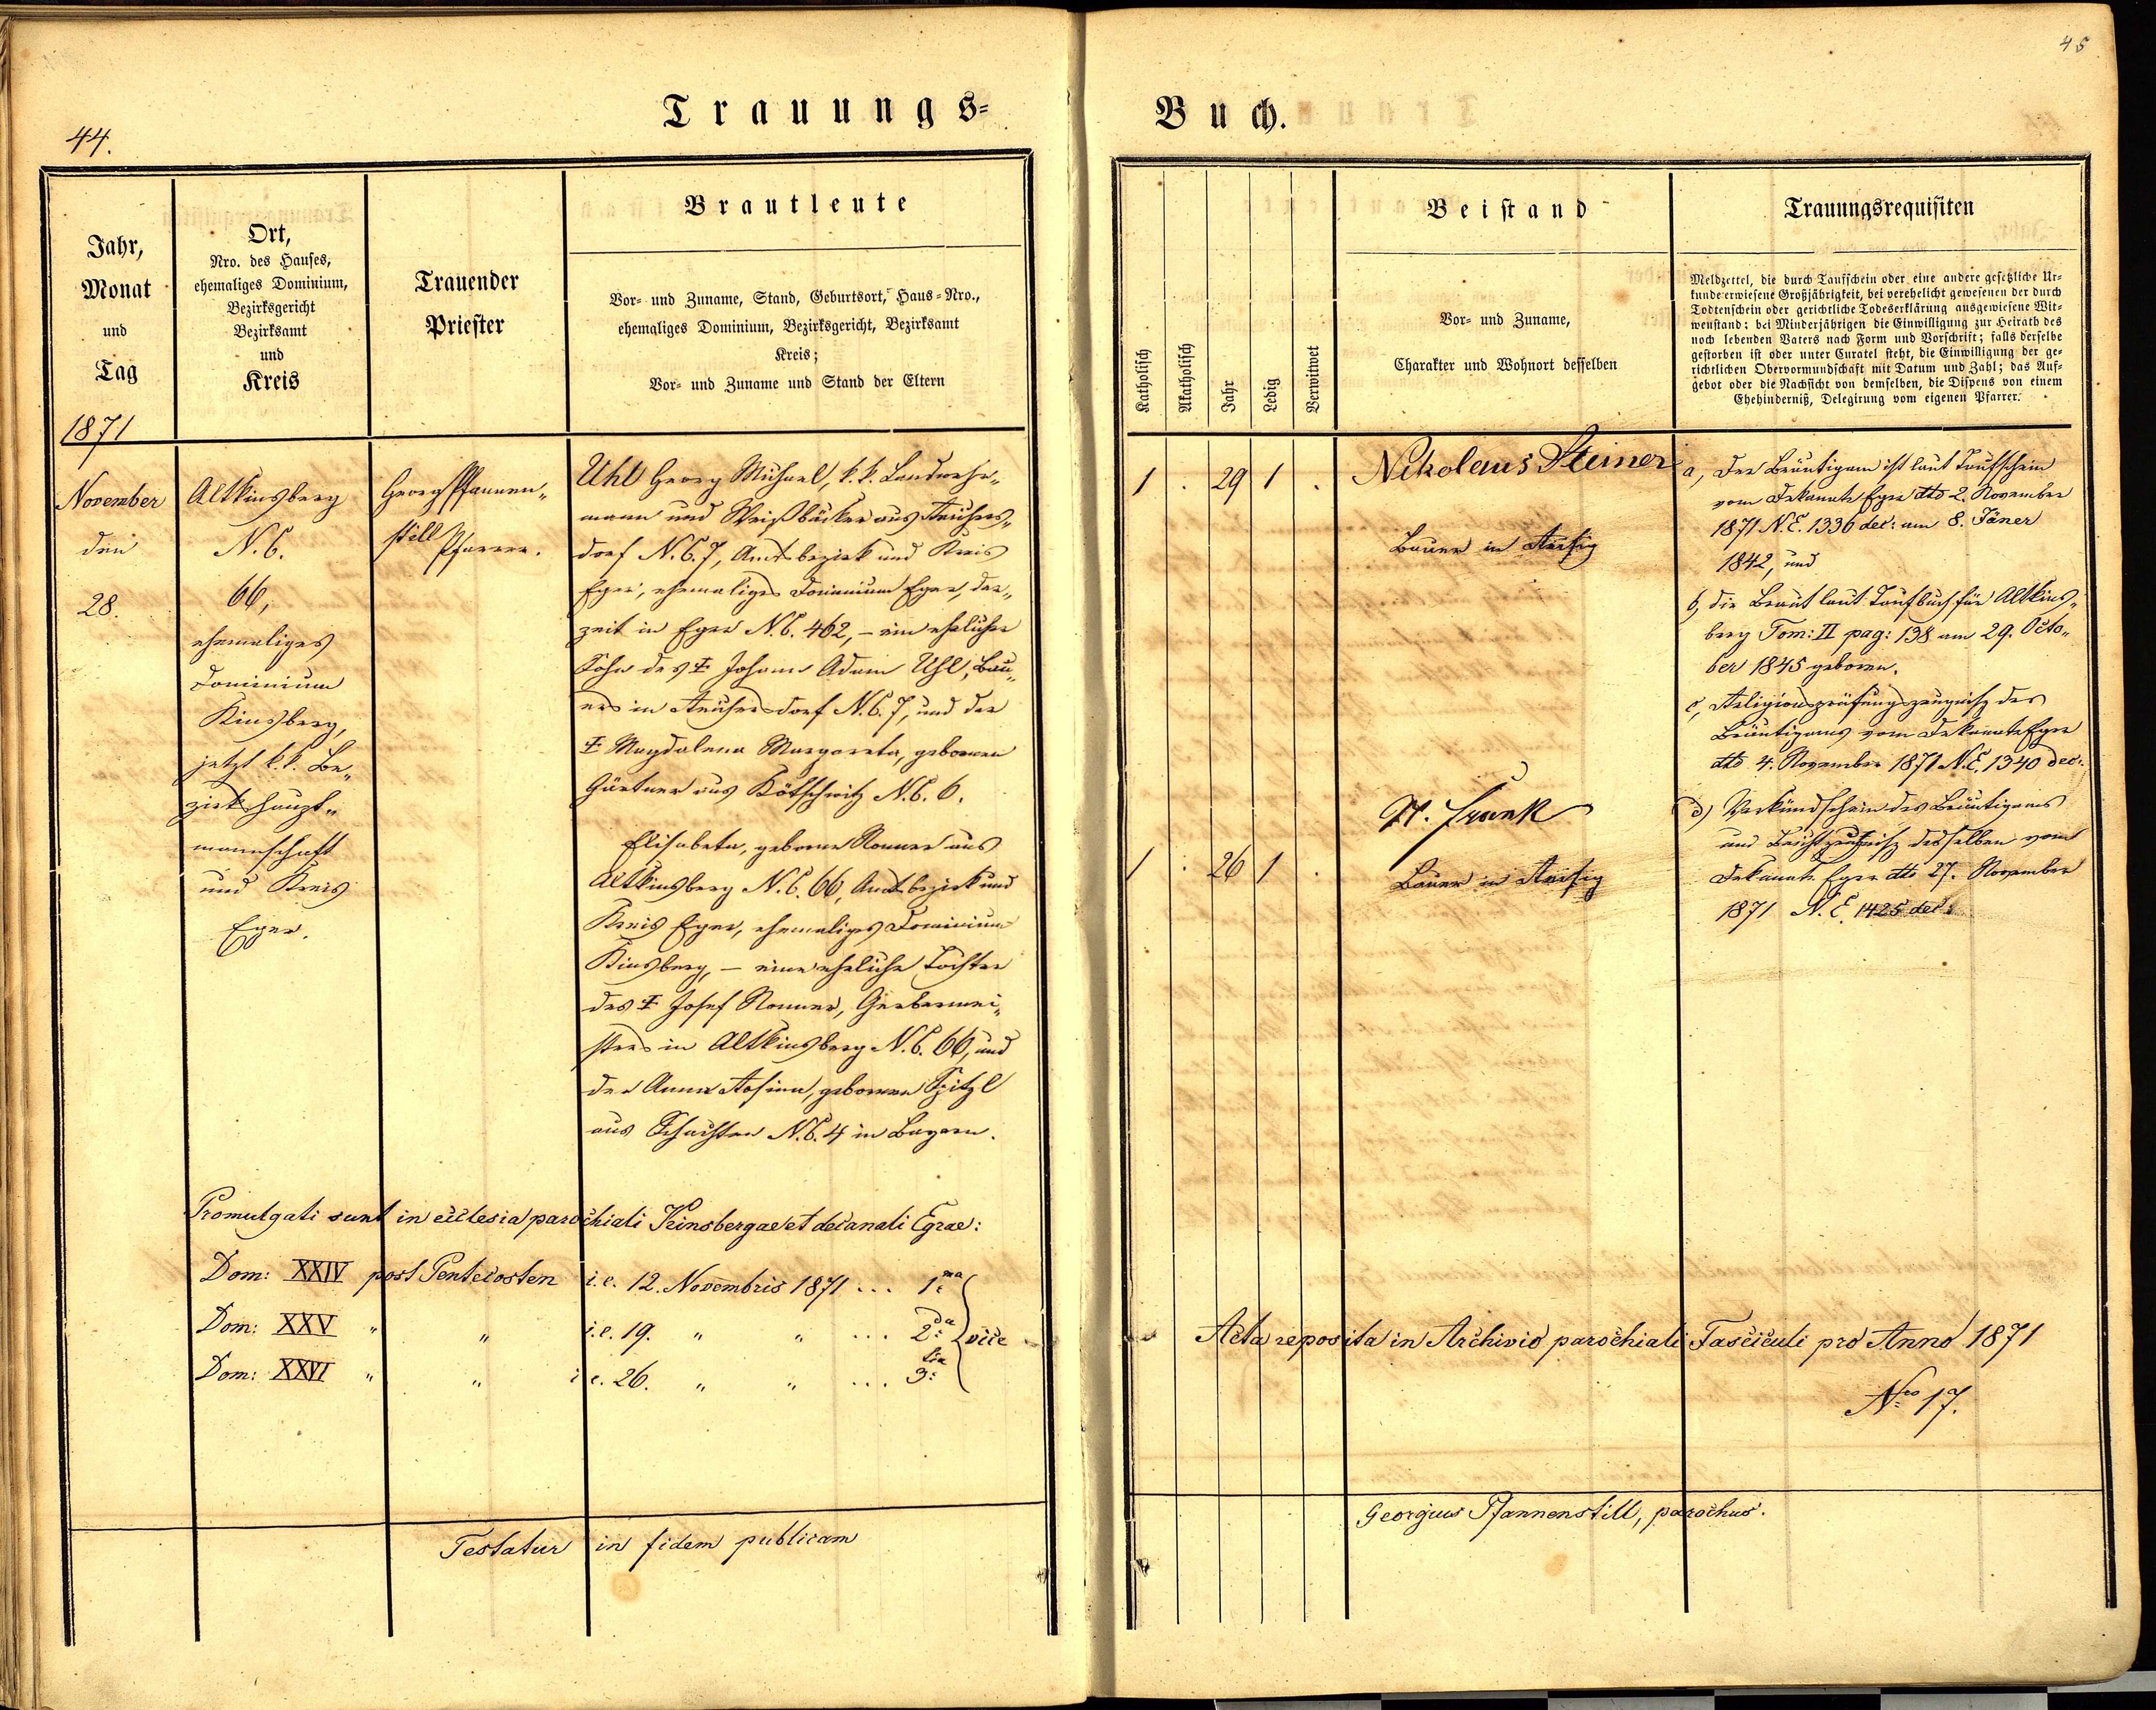 44.
Trauungs-
Jahr,
Monat
und
Tag
1871
Ort,
Nro. des Hauses,
ehemaliges Dominium,
Bezirksgericht
Bezirksamt
und
Kreis
Trauender
Priester
Brautleute
Vor- und Zuname, Stand, Geburtsort, Haus-Nro.,
ehemaliges Dominium, Bezirksgericht, Bezirksamt
Kreis;
Vor- und Zuname und Stand der Eltern
November
den
28.
Altkinsberg
N.C.
66,
ehemaliges
Dominium
Kinsberg,
jetzt k.k. Be„
zirkshaupt„
mannschaft
und Kreis
Eger.
Georg Pfannen„
still
Pfarrer.
Uhl Georg Michael, k.k. Landwehr„
mann und Weißbäcker aus
dorf N.C. 7, Amtsbezirk und Kreis
Eger, ehemaliges Dominium Eger, der„
zeit in Eger N.C. 462, – ein ehelicher
Sohn des Ŧ Johann Adam Uhl, Bau„
ers in N.C. 7, und der
Ŧ Magdalena Margareta, geborenen
Gärtner aus Kötschwitz N.C. 6.
Elisabeta, geborne Ronner aus
Altkinsberg N.C. 66, Amtsbezirk und
Kreis Eger, ehemaliges Dominium
Kinsberg, – eine eheliche Tochter
des Ŧ Josef Ronner, Gerbermei„
sters in Altkinsberg N.C. 66, und
der Anna Rosina, geborenen Spitzl
aus Schachten N.C. 4 in Bayern.
Promulgati sunt in ecclesia parochiali Kinsbergae et decanali Egrae:
Dom: XXIV post Pentecosten i.e. 12. Novembris 1871 ... 1ma
Dom: XXV „ „ i.e. 19. „ „ ... 2da vice
Dom: XXVI „ „ i.e. 26. „ „ ... 3tia
Testatur in fidem publicam
45
Buch.
Katholisch
Akatholisch
Jahr
Ledig
Verwitwet
Beistand
Vor- und Zuname,
Charakter und Wohnort desselben
Trauungsrequisiten
Meldzettel, die durch Taufschein oder eine andere gesetzliche Ur-
kunde erwiesene Großjährigkeit, bei verehelicht gewesenen der durch
Todtenschein oder gerichtliche Todeserklärung ausgewiesene Wit-
wenstand; bei Minderjährigen die Einwilligung zur Heirath des
noch lebenden Vaters nach Form und Vorschrift; falls derselbe
gestorben ist oder unter Curatel steht, die Einwilligung der ge-
richtlichen Obervormundschaft mit Datum und Zahl; das Auf-
gebot oder die Nachsicht von demselben, die Dispens von einem
Ehehinderniß, Delegirung vom eigenen Pfarrer.
1 . 29 1 .
Nikolaus Steiner
Bauer in Reißig
1 . 26 1 .
N. Frank
Bauer in Reißig
a, Der Bräutigam ist laut Taufschein
vom Dekanate Eger dto 2. November
1871 N.E. 1336 dec: am 8. Jäner
1842, und
b, die Braut laut Taufbuch für Altkins„
berg Tom: II pag: 138 am 29. Octo„
ber 1845 geboren.
c, Religionsprüfungszeugniß des
Bräutigams vom Dekanate Eger
dto 4. November 1871 N.E. 1340 dec:
d) Verkündschein des Bräutigams
und Beichtzeugniß desselben vom
Dekanate Eger dto 27. November
1871 N.E. 1425 dec:
Acta reposita in Archivio parochiali Fasciculi pro Anno 1871
Nro 17.
Georgius Pfannenstill, parochus.